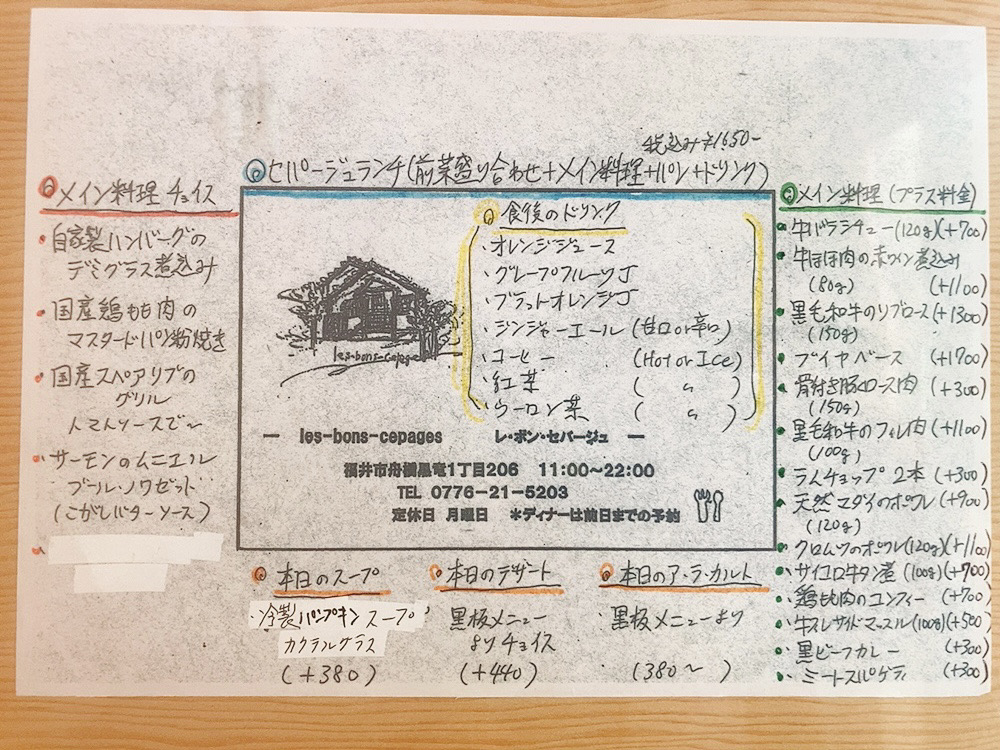 税込み¥1650-
◎セパージュランチ(前菜盛り合わせ+メイン料理+パン+ドリンク)
◎メイン料理 チョイス
・自家製ハンバーグの
デミグラス煮込み
・国産鶏もも肉の
マスタードパン粉焼き
・国産スペアリブの
グリル
トマトソースで〜
・サーモンのムニエル
ブール・ノワゼット
(こがしバターソース)
◎食後のドリンク
・オレンジジュース
・グレープフルーツJ
・ブラットオレンジJ
・ジンジャーエール (甘口or辛口)
・コーヒー (Hot or Ice)
・紅茶 ( 〃 )
・ウーロン茶 ( 〃 )
les-bons-cepages
― les-bons-cepages レ・ボン・セパージュ ―
福井市舟橋黒竜1丁目206 11:00〜22:00
TEL 0776-21-5203
定休日 月曜日 *ディナーは前日までの予約
◎メイン料理 (プラス料金)
・牛バラシチュー(120g)(+700)
・牛ほほ肉の赤ワイン煮込み
(80g) (+1100)
・黒毛和牛のリブロース(+1300)
(150g)
・ブイヤベース (+1700)
・骨付き豚ロース肉 (+300)
(150g)
・黒毛和牛のフィレ肉(+1100)
(100g)
・ラムチョップ 2本 (+300)
・天然マダイのポワレ(+900)
(120g)
・クロムツのポワレ(120g)(+1100)
・サイコロ牛タン煮 (100g)(+900)
・鶏もも肉のコンフィー (+700)
・牛フレサイドマッスル(100g)(+500)
・黒ビーフカレー (+300)
・ミートスパゲティ (+300)
◎本日のスープ
・冷製パンプキンスープ
カクテルグラス
(+380)
◎本日のデザート
黒板メニュー
よりチョイス
(+440)
◎本日のア・ラ・カルト
・黒板メニューより
(380〜 )